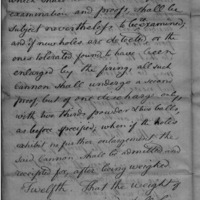 examination and proof, shall be
subject nevertheless to be examined;
and if new holes are detected, or the
ones tolerated found to have been
enlarged by the firing, all such
cannon shall undergo a second
proof but of one discharge only
with two thirds powder & two balls,
as before specified; when if the holes
exhibit no further enlargement the
said Cannon shall be admitted and
receipted for, after being weighed
Twelfth. That the weight of